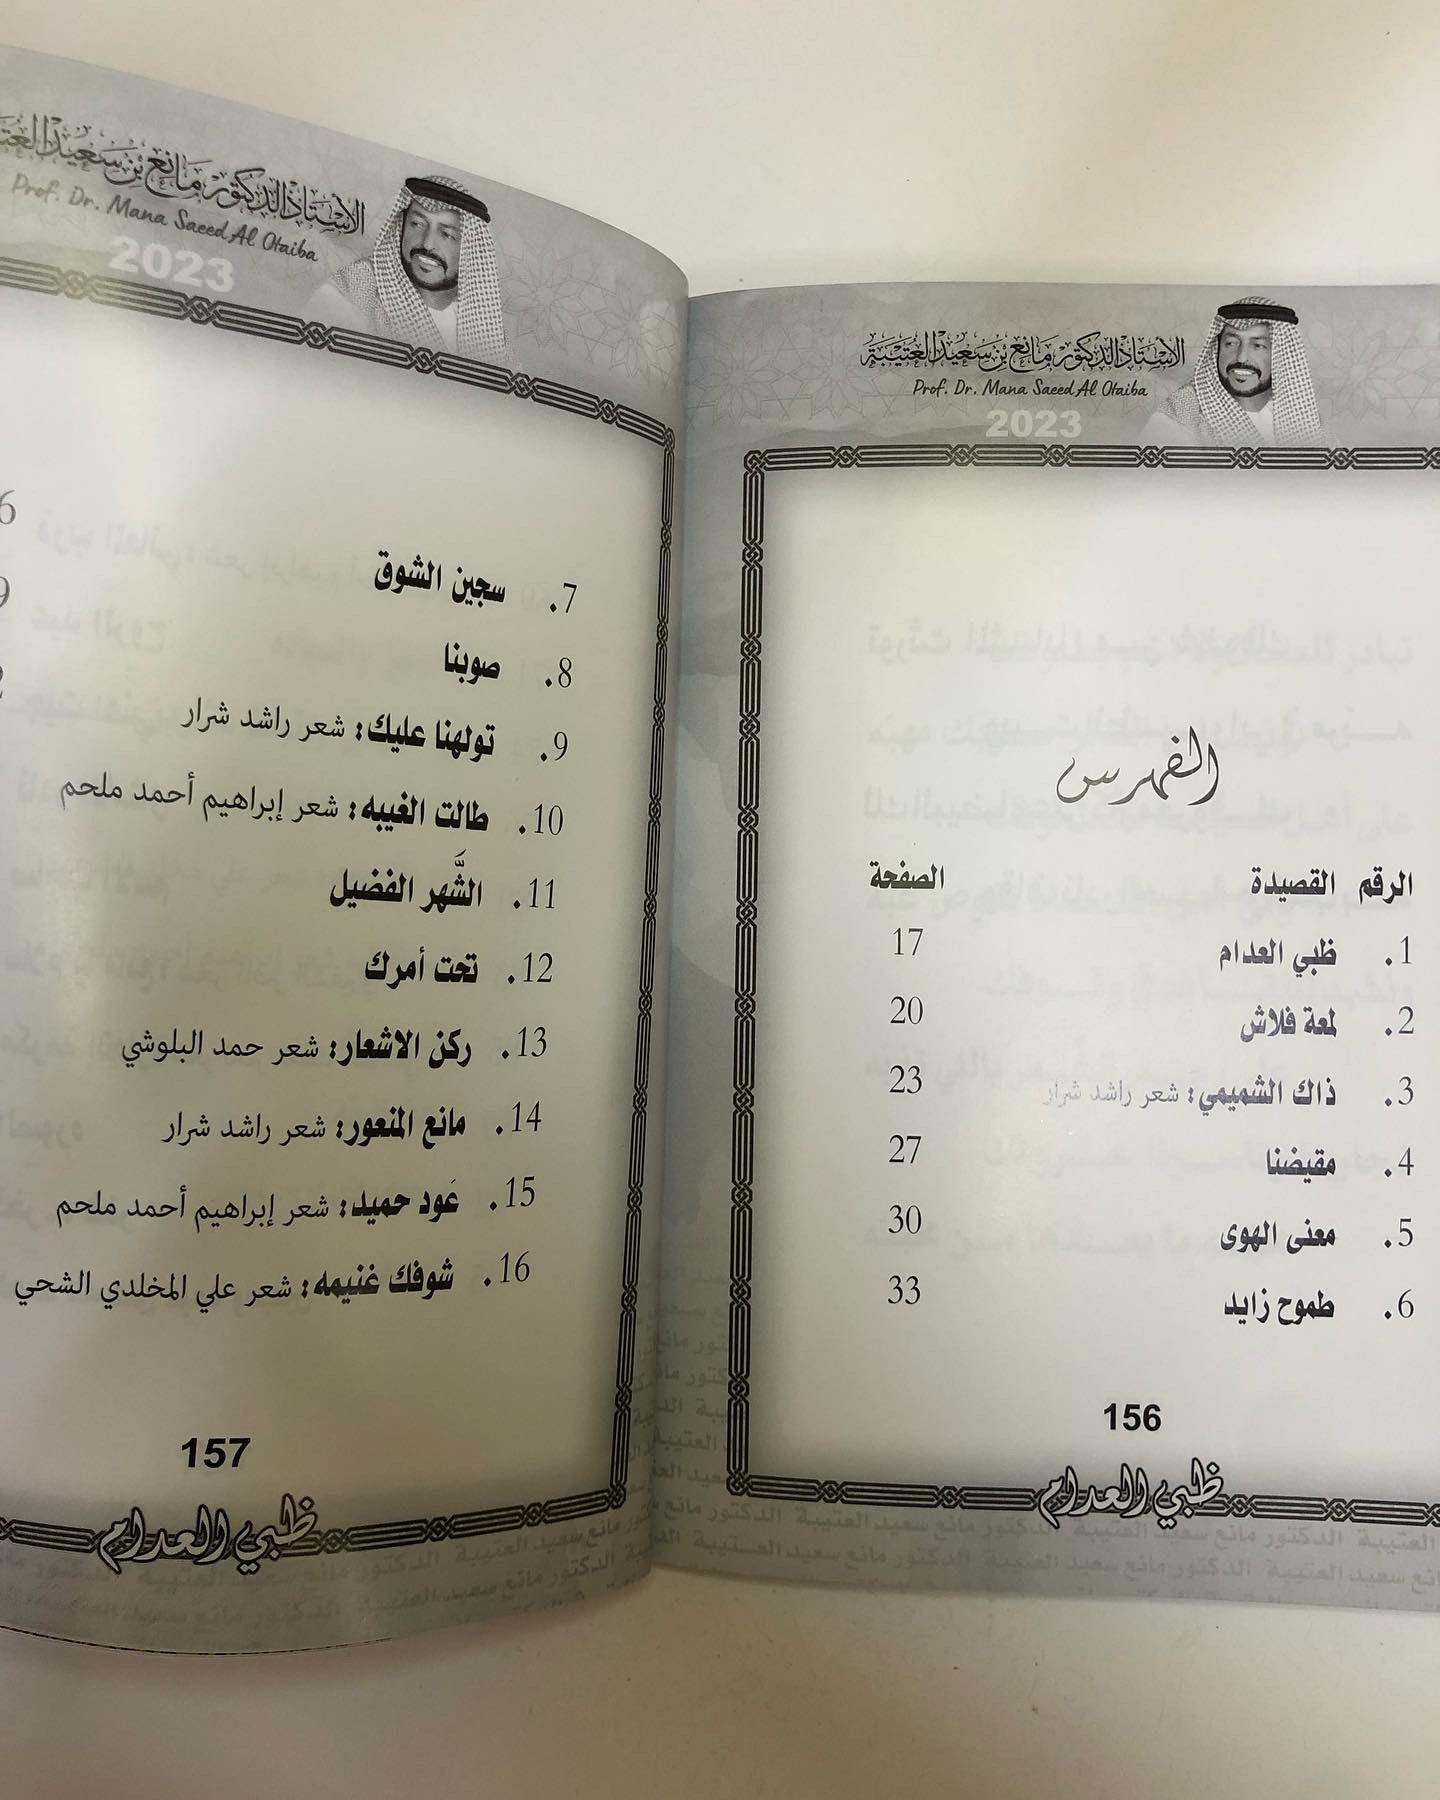 الأستاذ الدكتور مانع بن سعيد العتيبة
Prof. Dr. Mana Saeed Al Otaiba
2023
الفهرس
الرقم القصيدة الصفحة
1. ظبي العدام 17
2. لمعة فلاش 20
3. ذاك الشميمي: شعر راشد شرار 23
4. مقيضنا 27
5. معنى الهوى 30
6. طموح زايد 33
156
ظبي العدام
الأستاذ الدكتور مانع بن سعيد
Prof. Dr. Mana Saeed Al Otaiba
2023
7. سجين الشوق 6
8. صوبنا 9
9. تولهنا عليك: شعر راشد شرار
10. طالت الغيبه: شعر إبراهيم أحمد ملحم
11. الشَّهر الفضيل
12. تحت أمرك
13. ركن الاشعار: شعر حمد البلوشي
14. مانع المنعور: شعر راشد شرار
15. عَود حميد: شعر إبراهيم أحمد ملحم
16. شوفك غنيمه: شعر علي المخلدي الشحي
157
ظبي العدام